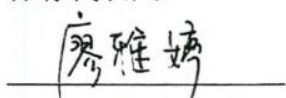 廖雅婷